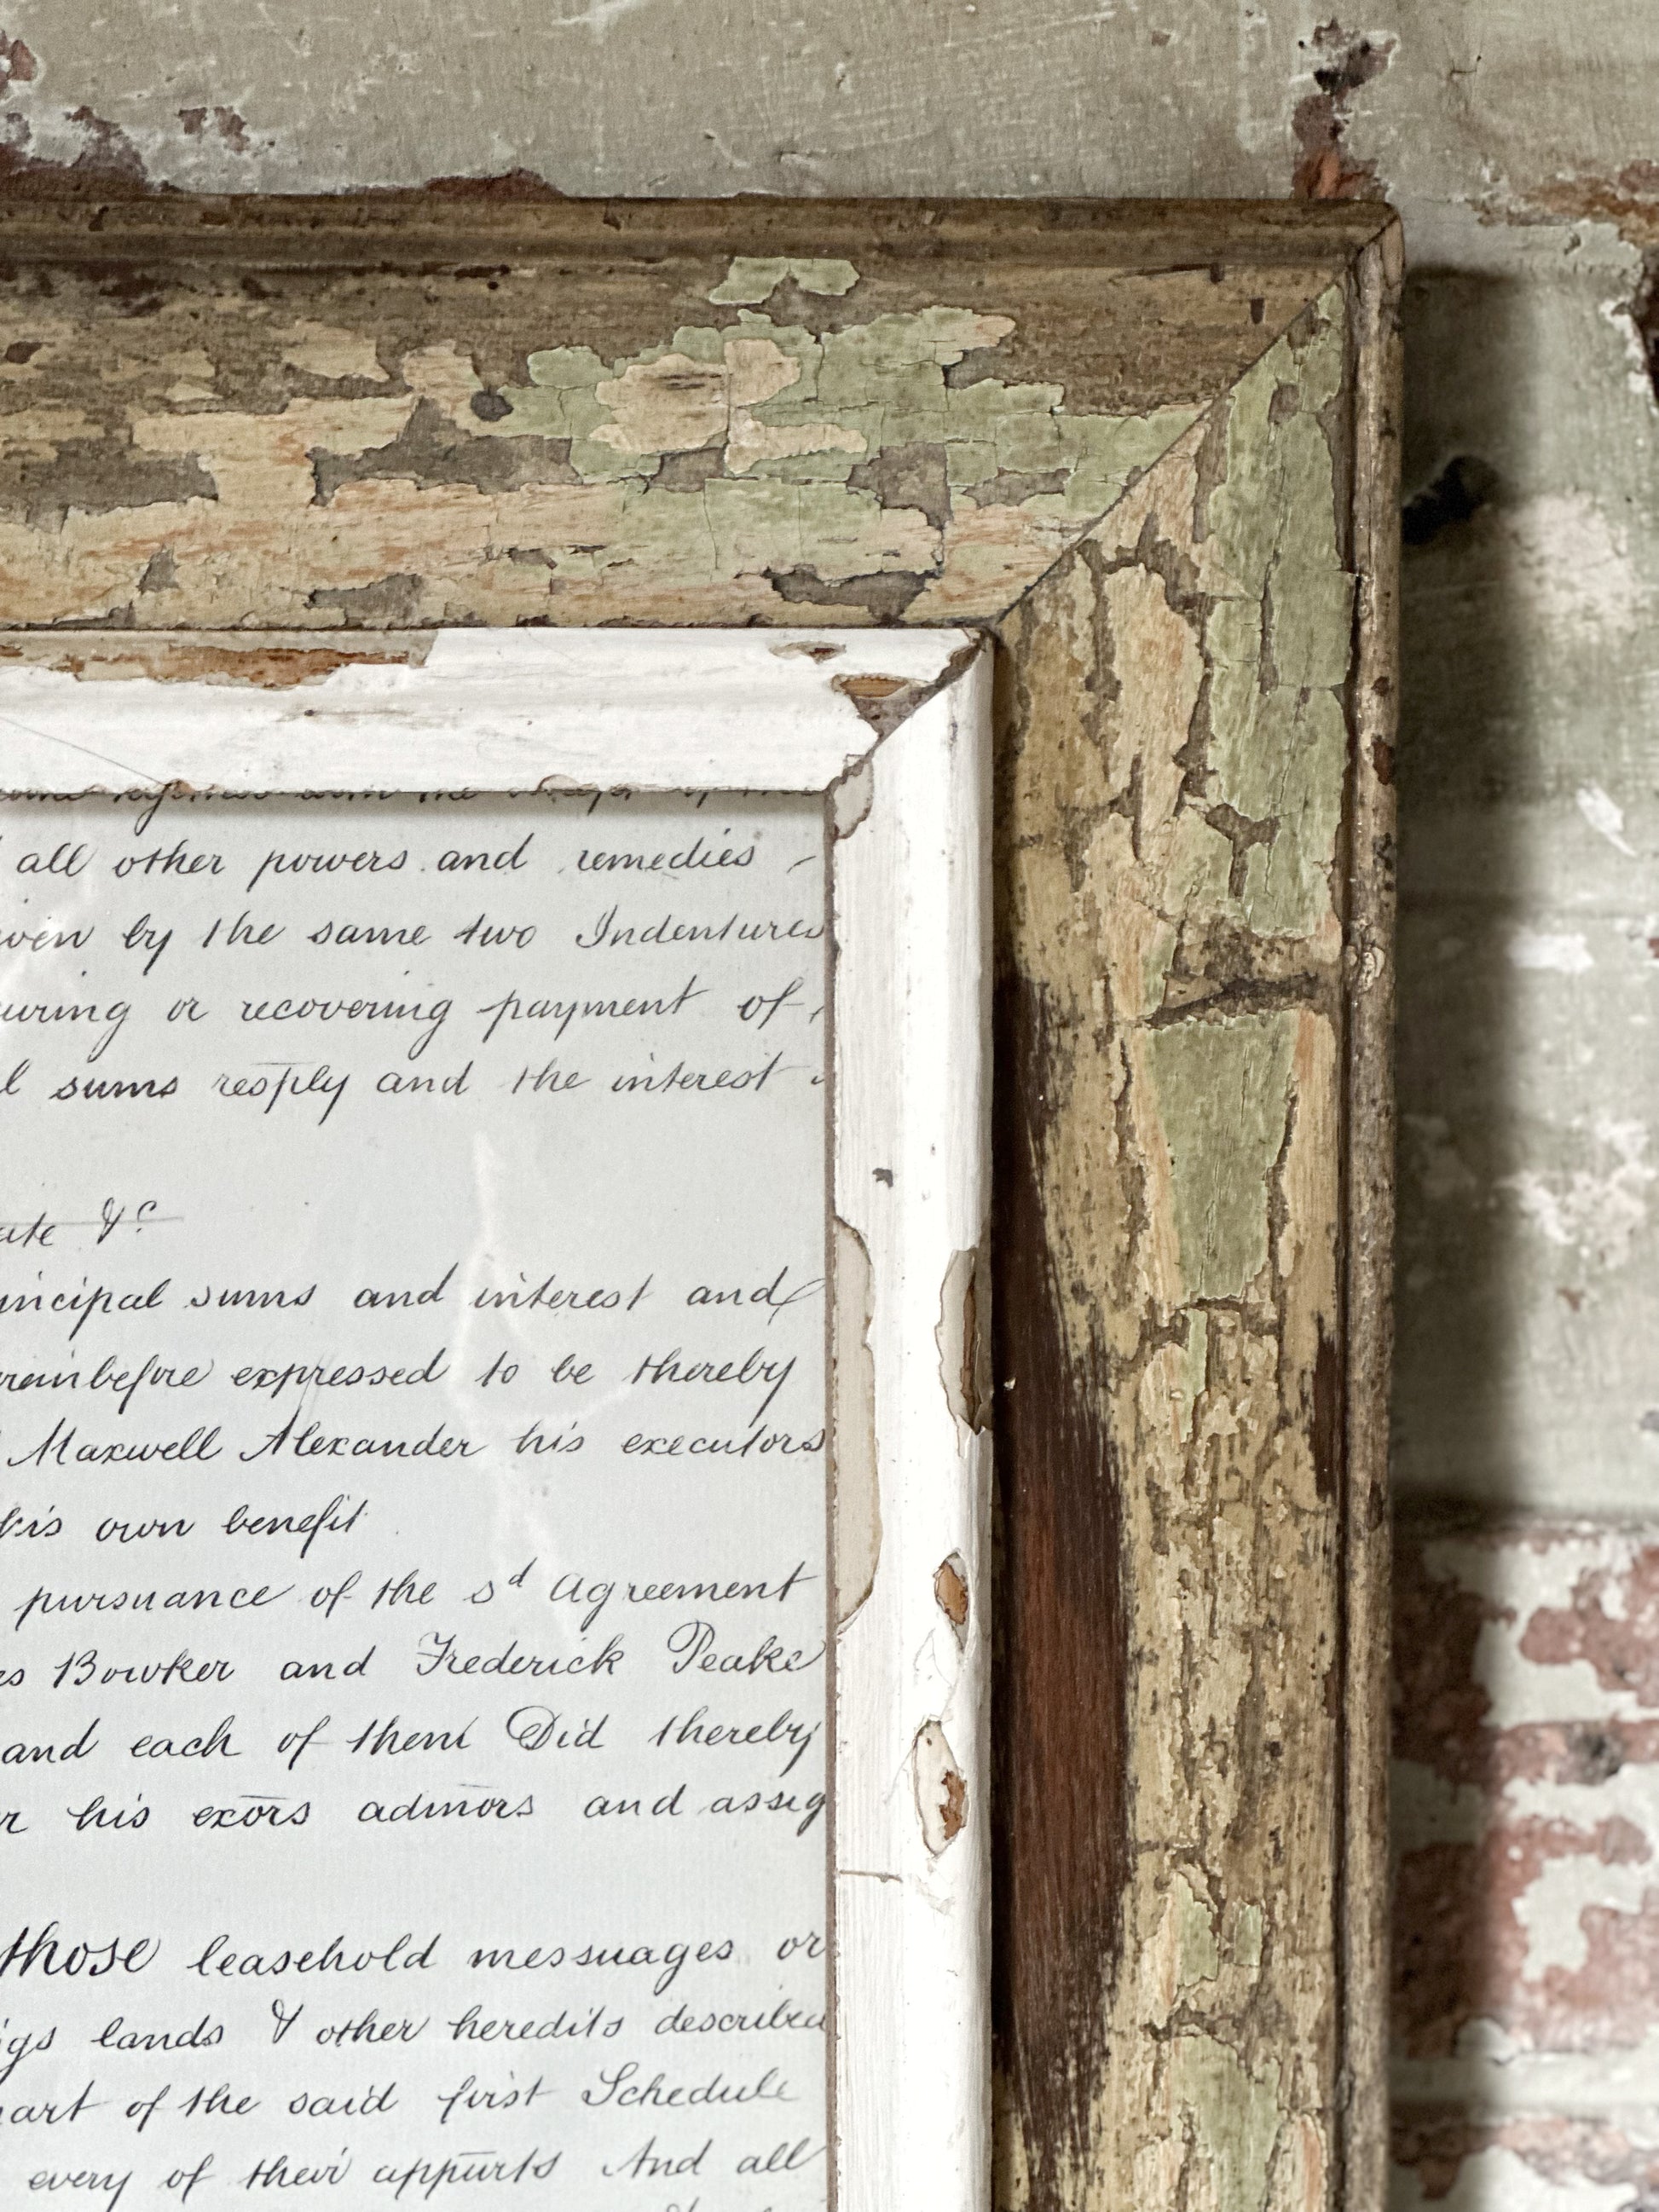 all other powers and remedies
by the same two Indentures
or recovering payment of
sums resply and the interest
&c
sums and interest and
expressed to be thereby
Maxwell Alexander his executors
his own benefit
pursuance of the sd Agreement
Bowker and Frederick Peake
and each of them Did thereby
his exors admors and assig
those leasehold messuages or
lands & other heredits described
part of the said first Schedule
every of their appurts And all